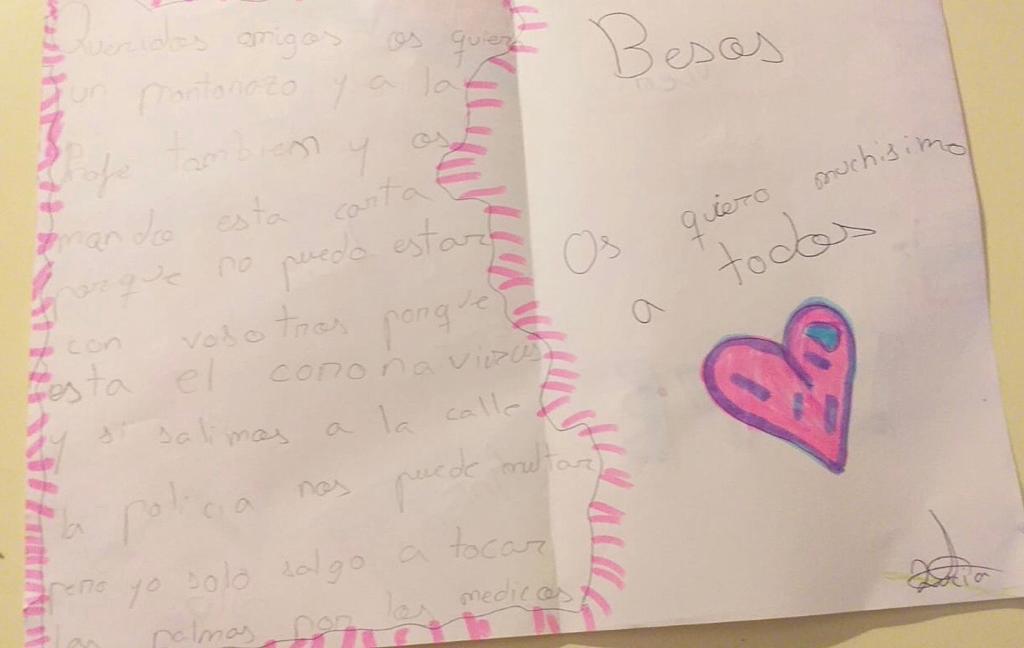 Queridos amigos os quier
un montonazo y a la
Profe tambien y os
mando esta carta
porque no puedo estar
con vosotros porque
esta el coronavirus
y si salimos a la calle
la policia nos puede multar
pero yo solo salgo a tocar
las palmas por los medicos
Besos
Os quiero muchisimo
a todos